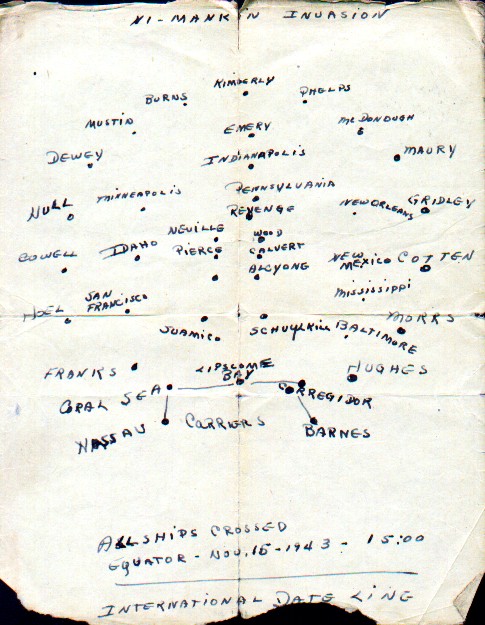 NI-MANKIN INVASION
KIMBERLY
BURNS PHELPS
MUSTIN EMERY McDONOUGH
DEWEY INDIANAPOLIS MAURY
MINNEAPOLIS PENNSYLVANIA
NULL REVENGE NEW ORLEANS GRIDLEY
NEVILLE WOOD
COWELL IDAHO PIERCE CALVERT NEW MEXICO COTTEN
ALCYONG
HOEL SAN FRANCISCO MISSISSIPPI
SUAMICO SCHUYLKILL BALTIMORE MORRS
FRANKS LIPSCOME BAY HUGHES
CORAL SEA CORREGIDOR
NASSAU CARRIERS BARNES
ALL SHIPS CROSSED
EQUATOR - NOV. 15 - 1943 - 15:00
INTERNATIONAL DATE LING